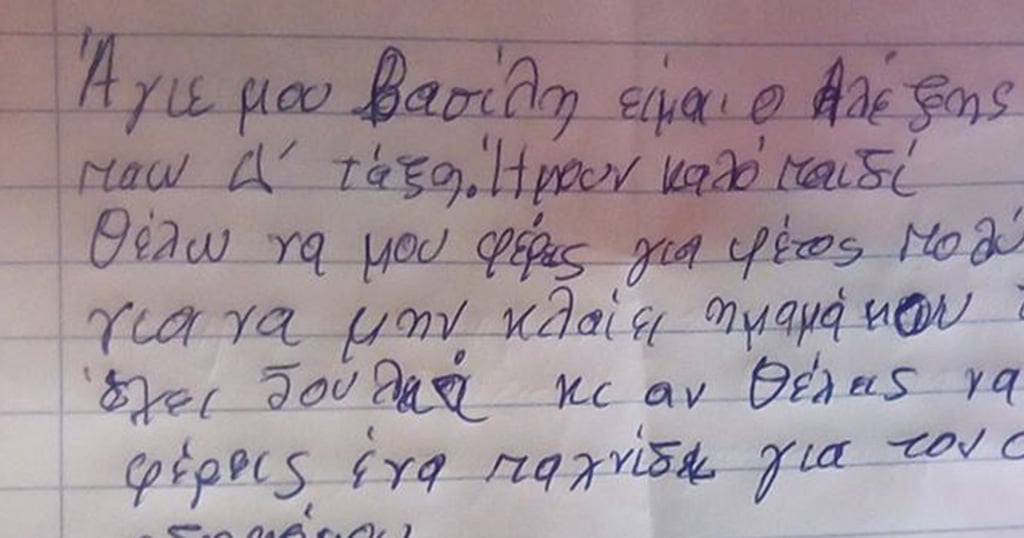 Άγιε μου Βασίλη είμαι ο Αλέξης
παω Δ΄ τάξη. Ήμουν καλό παιδί
Θέλω να μου φέρεις για φέτος πολύ
για να μην κλαίει η μαμά μου
έχει δουλειά κι αν θέλεις να
φέρεις ένα παχνίδι για τον